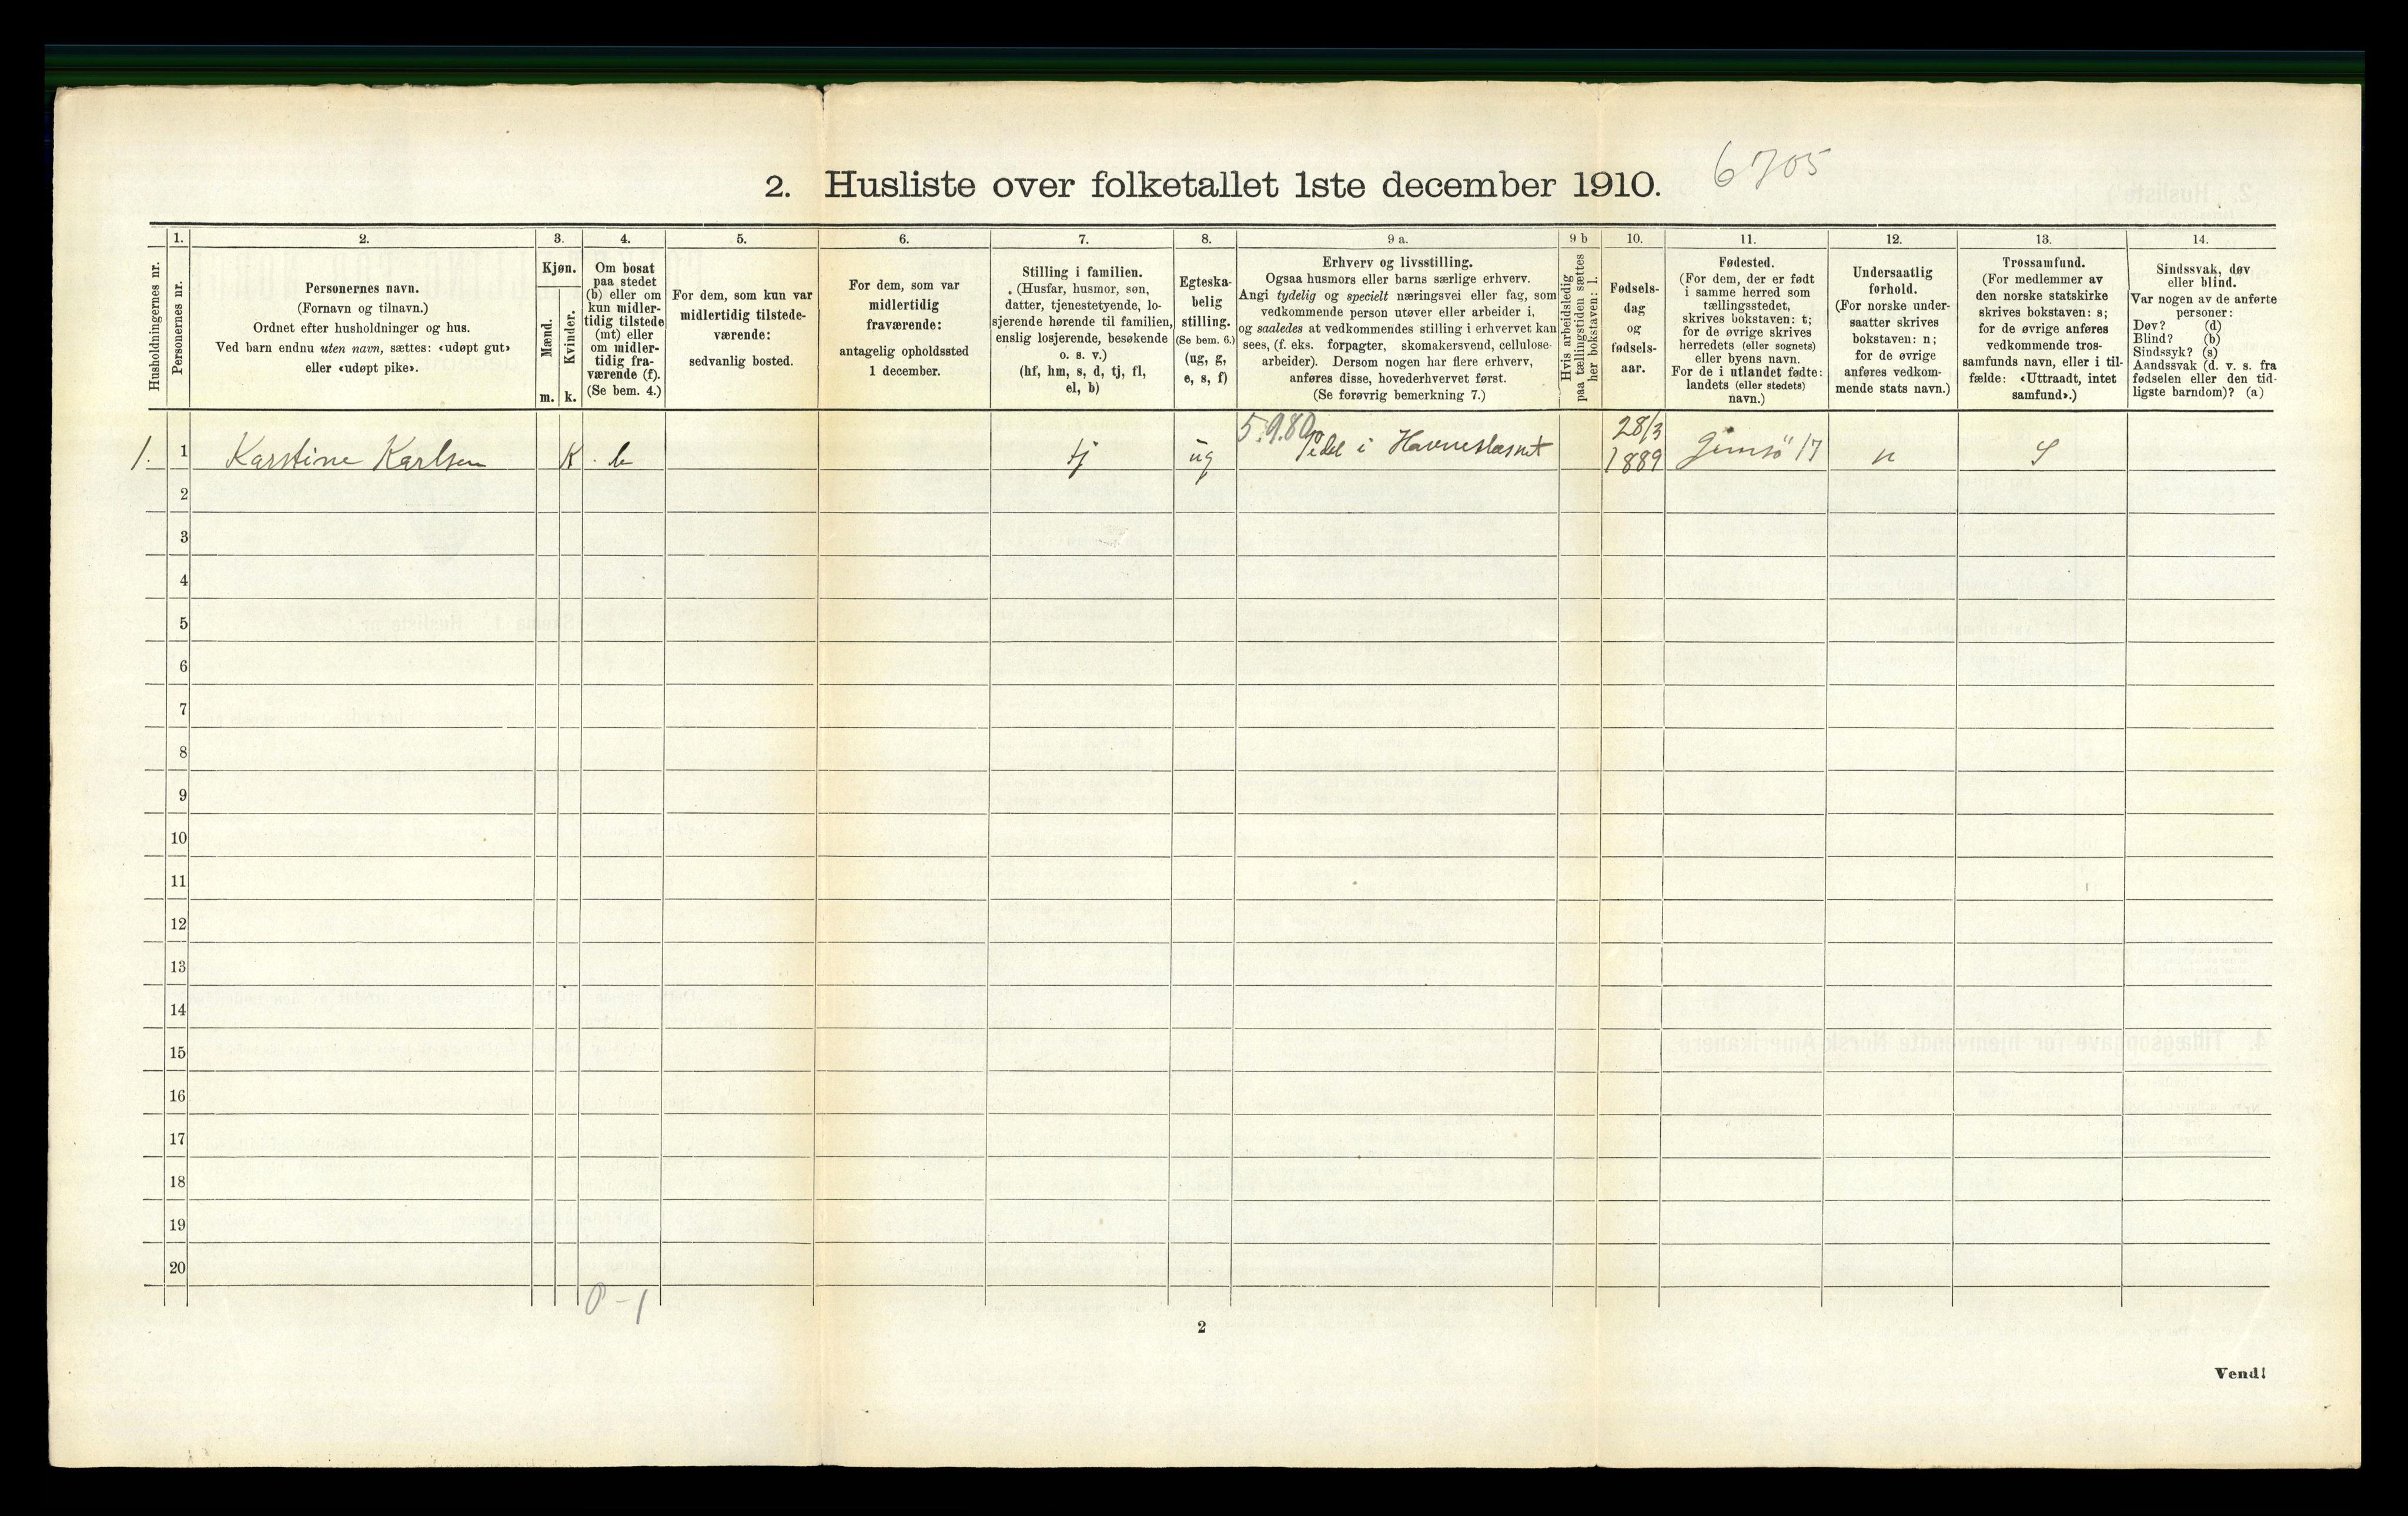 2. Husliste over folketallet 1ste december 1910.
6705
Husholdningernes nr.
1.
Personernes nr.
2.
Personernes navn.
(Fornavn og tilnavn.)
Ordnet efter husholdninger og hus.
Ved barn endnu uten navn, sættes: «udøpt gut»
eller «udøpt pike».
3.
Kjøn.
Mænd.
Kvinder.
m. k.
4.
Om bosat
paa stedet
(b) eller om
kun midler-
tidig tilstede
(mt) eller
om midler-
tidig fra-
værende (f).
(Se bem. 4.)
5.
For dem, som kun var
midlertidig tilstede-
værende:
sedvanlig bosted.
6.
For dem, som var
midlertidig
fraværende:
antagelig opholdssted
1 december.
7.
Stilling i familien.
(Husfar, husmor, søn,
datter, tjenestetyende, lo-
sjerende hørende til familien,
enslig losjerende, besøkende
o. s. v.)
(hf, hm, s, d, tj, fl,
el, b)
8.
Egteska-
belig
stilling.
(Se bem. 6.)
(ug, g,
e, s, f)
9 a.
Erhverv og livsstilling.
Ogsaa husmors eller barns særlige erhverv.
Angi tydelig og specielt næringsvei eller fag, som
vedkommende person utøver eller arbeider i,
og saaledes at vedkommendes stilling i erhvervet kan
sees, (f. eks. forpagter, skomakersvend, cellulose-
arbeider). Dersom nogen har flere erhverv,
anføres disse, hovederhvervet først.
(Se forøvrig bemerkning 7.)
9 b
Hvis arbeidsledig
paa tællingstiden sættes
her bokstaven: l.
10.
Fødsels-
dag
og
fødsels-
aar.
11.
Fødested.
(For dem, der er født
i samme herred som
tællingsstedet,
skrives bokstaven: t;
for de øvrige skrives
herredets (eller sognets)
eller byens navn.
For de i utlandet fødte:
landets (eller stedets)
navn.)
12.
Undersaatlig
forhold.
(For norske under-
saatter skrives
bokstaven: n;
for de øvrige
anføres vedkom-
mende stats navn.)
13.
Trossamfund.
(For medlemmer av
den norske statskirke
skrives bokstaven: s;
for de øvrige anføres
vedkommende tros-
samfunds navn, eller i til-
fælde: «Uttraadt, intet
samfund».)
14.
Sindssvak, døv
eller blind.
Var nogen av de anførte
personer:
Døv? (d)
Blind? (b)
Sindssyk? (s)
Aandssvak (d. v. s. fra
fødselen eller den tid-
ligste barndom)? (a)
5.9.80 28/3
1. 1 Karstine Karlsen K b tj ug i 1889 Gimsö 17 n S
2
3
4
5
6
7
8
9
10
11
12
13
14
15
16
17
18
19
20
0-1
2
Vend!